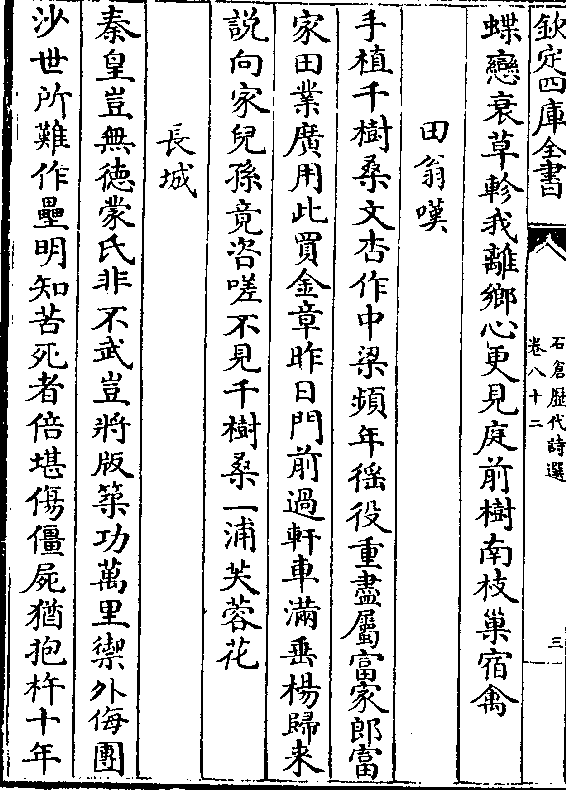 欽定四庫全書
石倉歷代詩選
卷八十二
三
蝶戀衰草軫我離鄉心更見庭前樹南枝巢宿禽
田翁嘆
手植千樹桑文杏作中梁頻年徭役重盡屬富家郎富
家田業廣用此買金章昨日門前過軒車滿垂楊歸来
説向家兒孫竟咨嗟不見千樹桑一浦芙蓉花
長城
秦皇豈無德蒙氏非不武豈將版築功萬里禦外侮團
沙世所難作壘明知苦死者倍堪傷僵屍猶抱杵十年